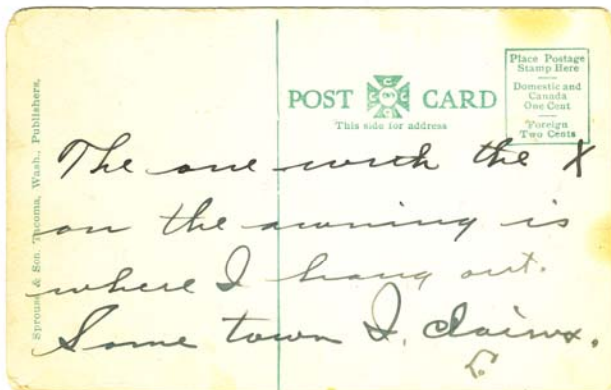 Sprouse & Son, Tacoma, Wash., Publishers.
POST CARD
This side for address
Place Postage
Stamp Here
Domestic and
Canada
One Cent
Foreign
Two Cents
The one with the X
on the awning is
where I hang out.
Some town I. claims.